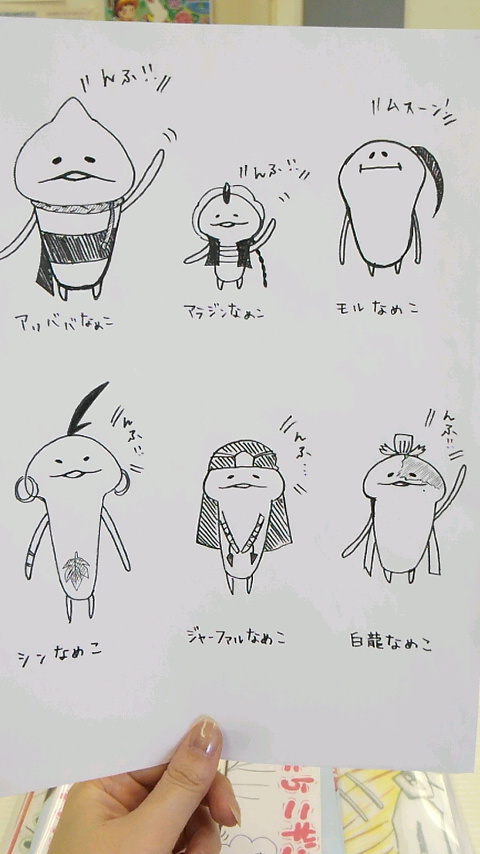 んふ!!
アリババなめこ
んふ!!
アラジンなめこ
ムスーン!
モルなめこ
んふ!!
シンなめこ
んふ…
ジャーファルなめこ
んふ!!
白龍なめこ